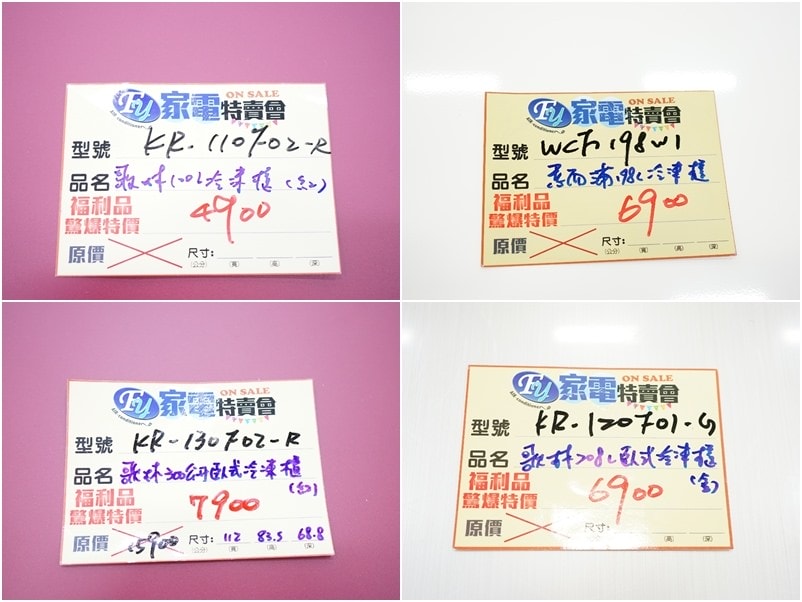 FU 家電特賣會 ON SALE
air conditioner
型號 KR-110F02-R
品名 歌林100L冷凍櫃(紅)
福利品
驚爆特價 4900
原價 尺寸:
(公分) (寬) (高) (深)
FU 家電特賣會 ON SALE
air conditioner
型號 WCF198W1
品名 惠而浦198L冷凍櫃
福利品
驚爆特價 6900
原價 尺寸:
(公分) (寬) (高) (深)
FU 家電特賣會 ON SALE
air conditioner
型號 KR-130F02-R
品名 歌林300公升臥式冷凍櫃
(紅)
福利品
驚爆特價 7900
原價 15900 尺寸: 112 83.5 68.8
(公分) (寬) (高) (深)
FU 家電特賣會 ON SALE
air conditioner
型號 KR-120F01-G
品名 歌林208L臥式冷凍櫃
(金)
福利品
驚爆特價 6900
原價 尺寸:
(公分) (寬) (高) (深)